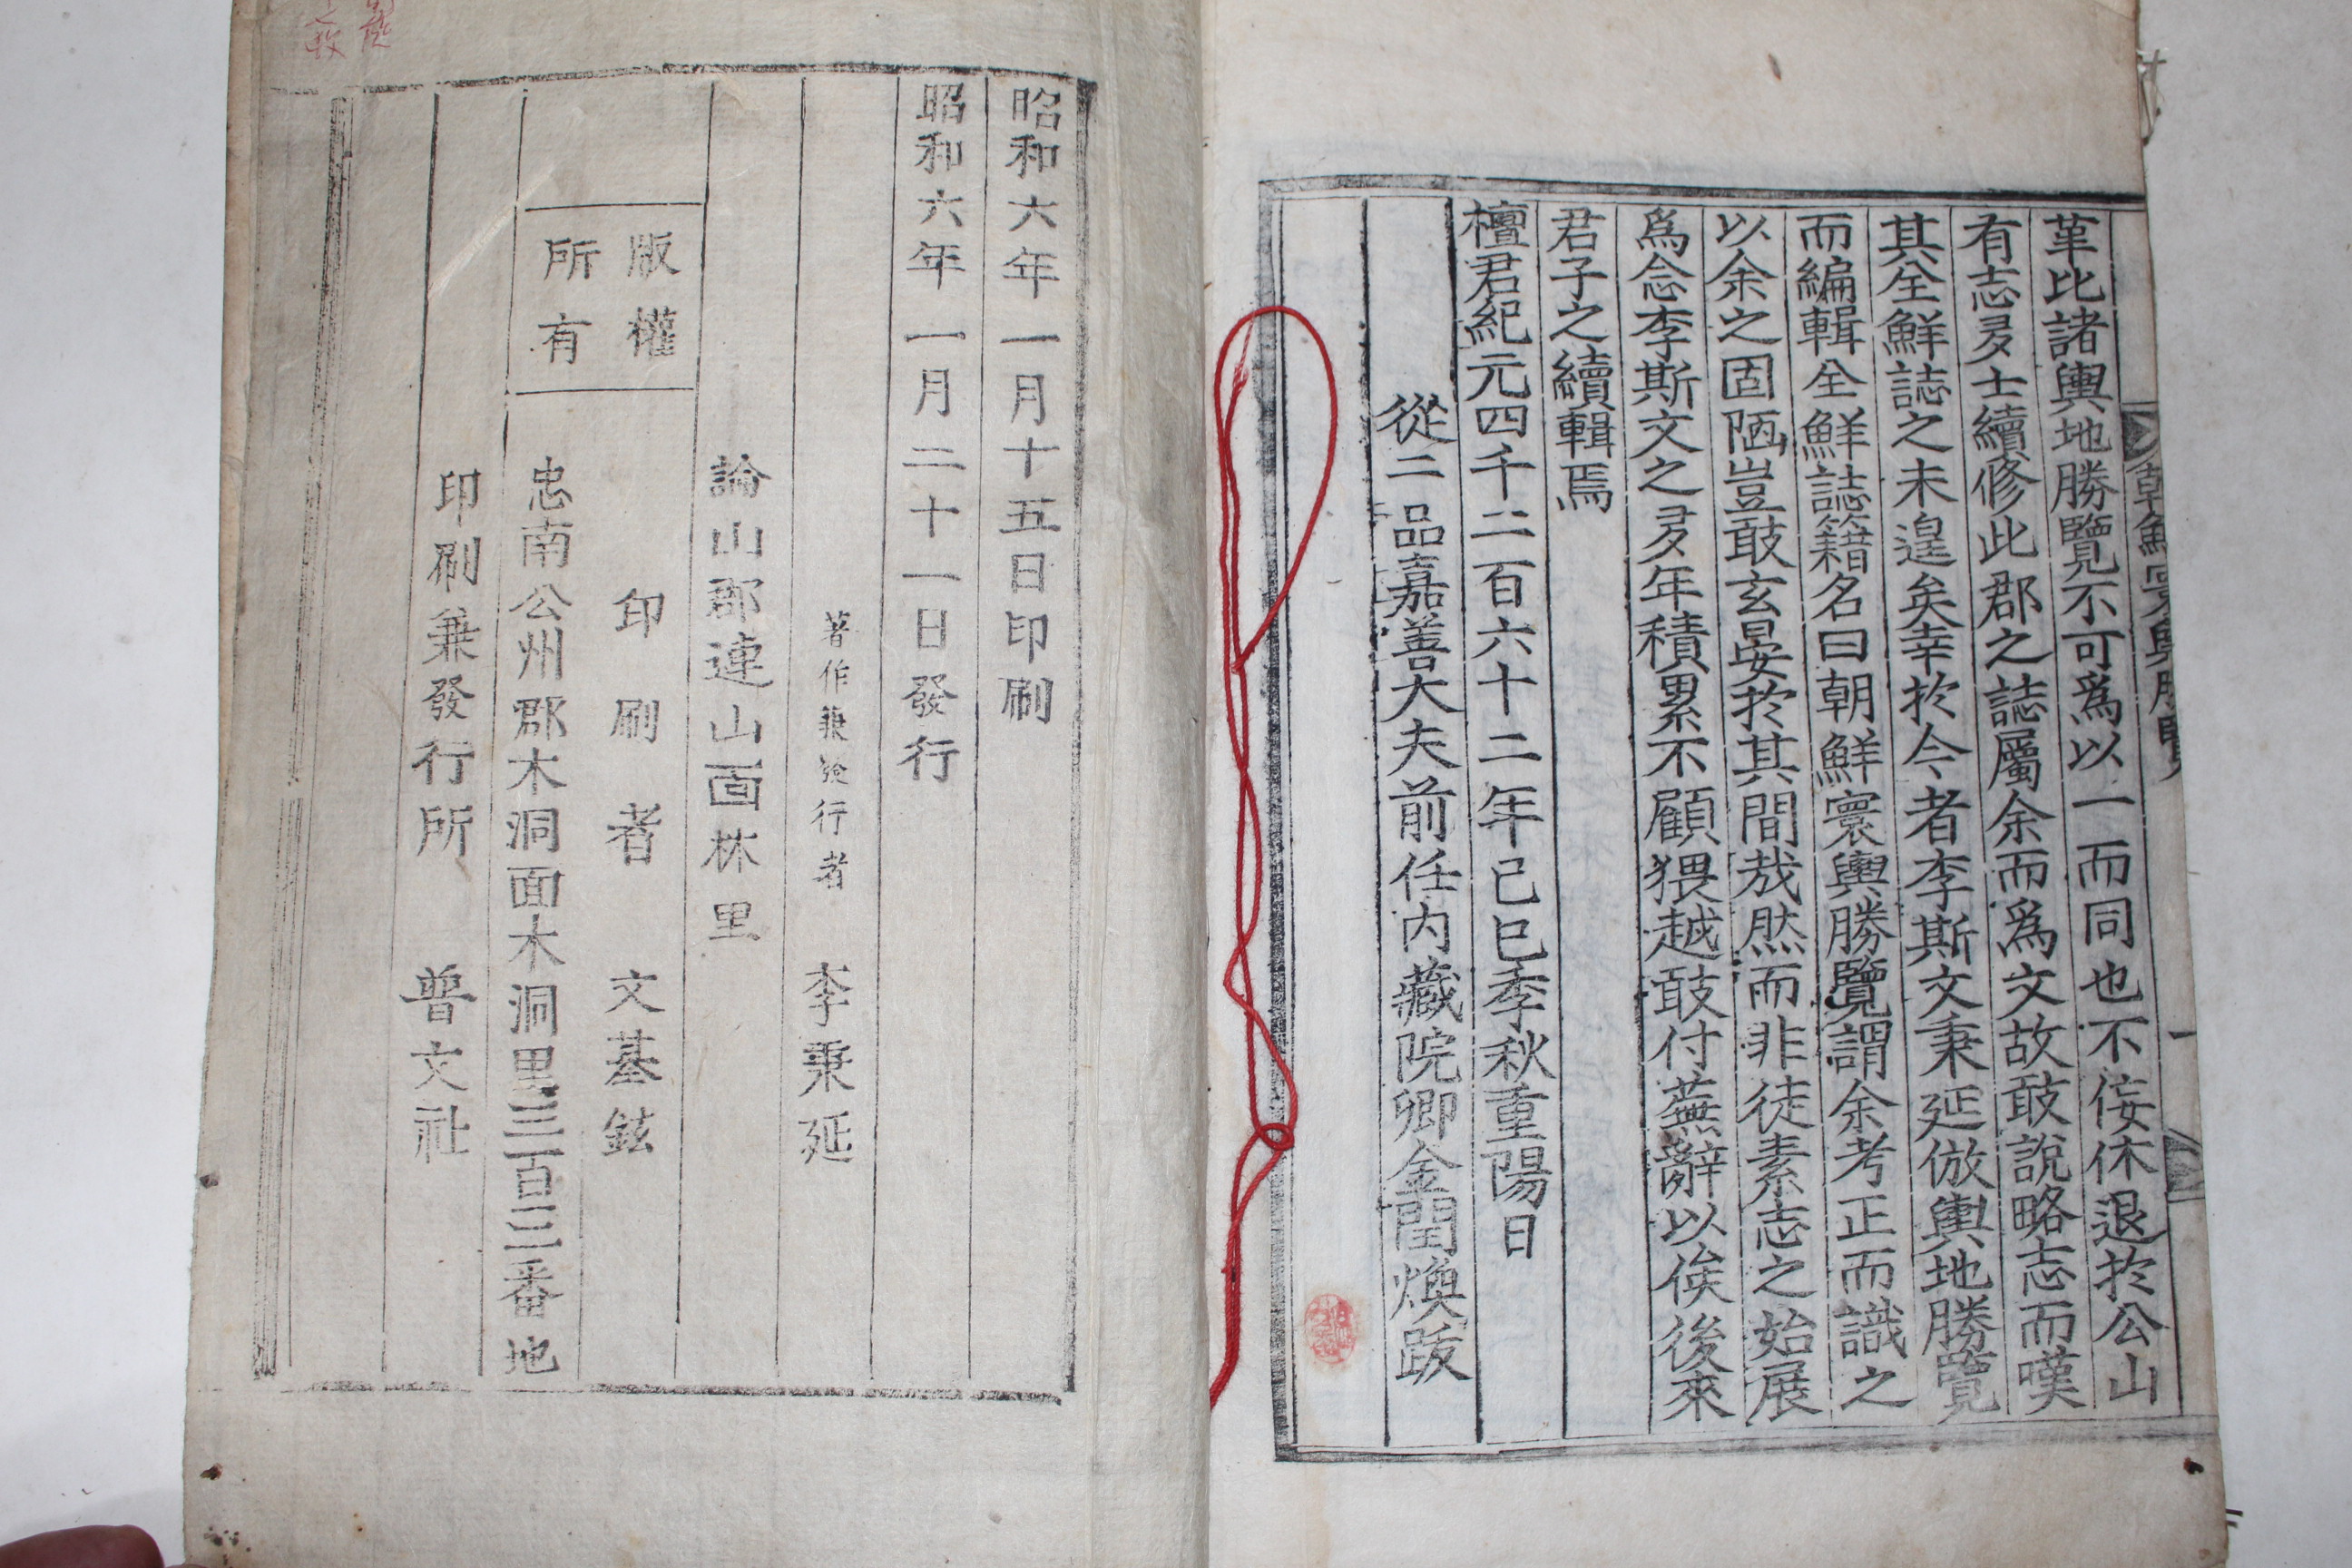 革比諸輿地勝覽不可爲以一而同也不侫休退於公山
有志多士續修此郡之誌屬余而爲文故敢說略志而嘆
其全鮮誌之未遑矣幸於今者李斯文秉延倣輿地勝覽
而編輯全鮮誌籍名曰朝鮮寰輿勝覽謂余考正而識之
以余之固陋豈敢玄晏於其間哉然而非徒素志之始展
爲念李斯文之多年積累不顧猥越敢付蕪辭以俟後來
君子之續輯焉
檀君紀元四千二百六十二年己巳季秋重陽日
從二品嘉善大夫前任內藏院卿金閏煥跋
朝鮮寰輿勝覽
一
昭和六年一月十五日印刷
昭和六年一月二十一日發行
著作兼發行者 李秉延
論山郡連山面林里
版權
所有
印刷者 文基鉉
忠南公州郡木洞面木洞里三百三番地
印刷兼發行所 普文社